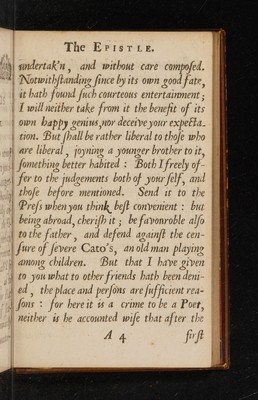 The EPISTLE.
undertak'n, and without care composed.
Notwithſtanding ſince by its own good fate,
it hath found ſuch courteous entertainment;
I will neither take from it the benefit of its
own happy genius, nor deceive your expecta-
tion. But ſhall be rather liberal to thoſe who
are liberal, joyning a younger brother to it,
ſomething better habited : Both I freely of-
fer to the judgements both of your ſelf, and
thoſe before mentioned. Send it to the
Preſs when you think beſt convenient : but
being abroad, cheriſh it; be favonroble alſo
to the father, and defend againſt the cen-
ſure of ſevere Cato's, an old man playing
among children. But that I have given
to you what to other friends hath been deni-
ed, the place and perſons are ſufficient rea-
ſons : for here it is a crime to be a Poet,
neither is he accounted wiſe that after the
A 4 firſt